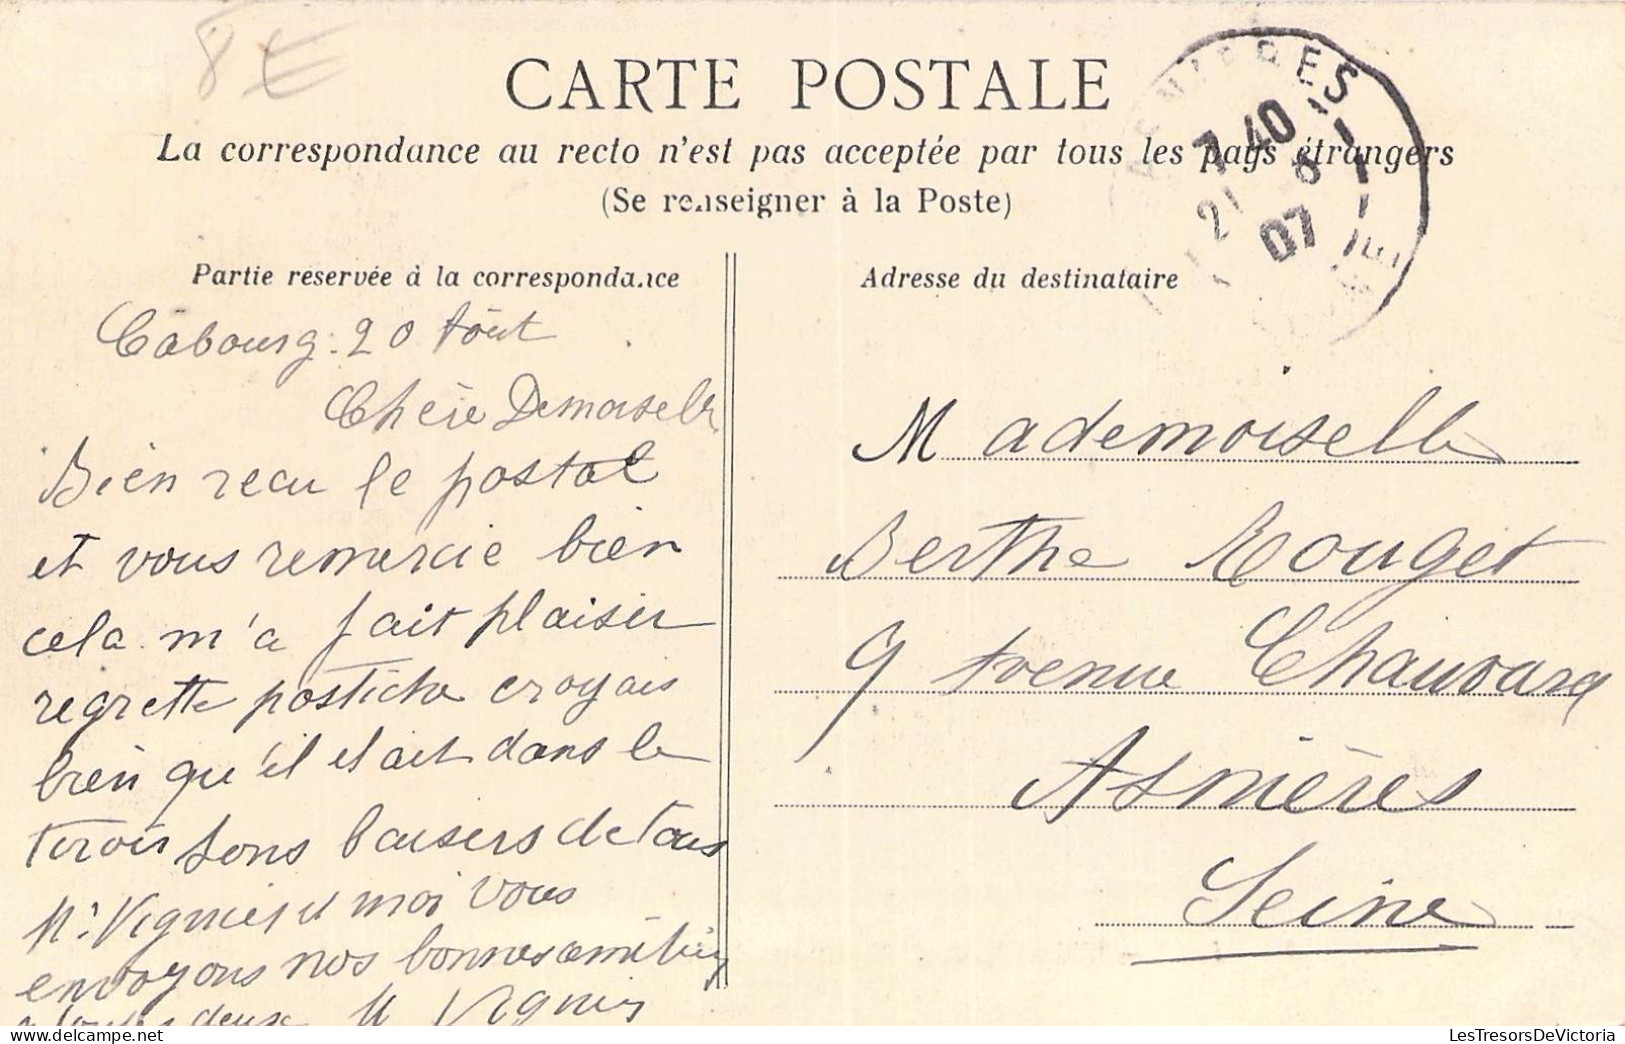 8 €
CARTE POSTALE
La correspondance au recto n'est pas acceptée par tous les pays étrangers
(Se renseigner à la Poste)
ASNIERES
7 40
21 8
07
SEINE
Partie réservée à la correspondance
Adresse du destinataire
Cabourg. 20 Août
Chère Demoiselle
Bien recu le postal
et vous remercie bien
cela m'a fait plaisir
regrette postiche croyais
bien qu'il était dans le
tiroir bons baisers de tous
Mr Vignier et moi vous
envoyons nos bonnes amitiés
deux M Vignier
Mademoiselle
Berthe Rouget
9 Avenue Chauvard
Asnières
Seine
LesTresorsDeVictoria